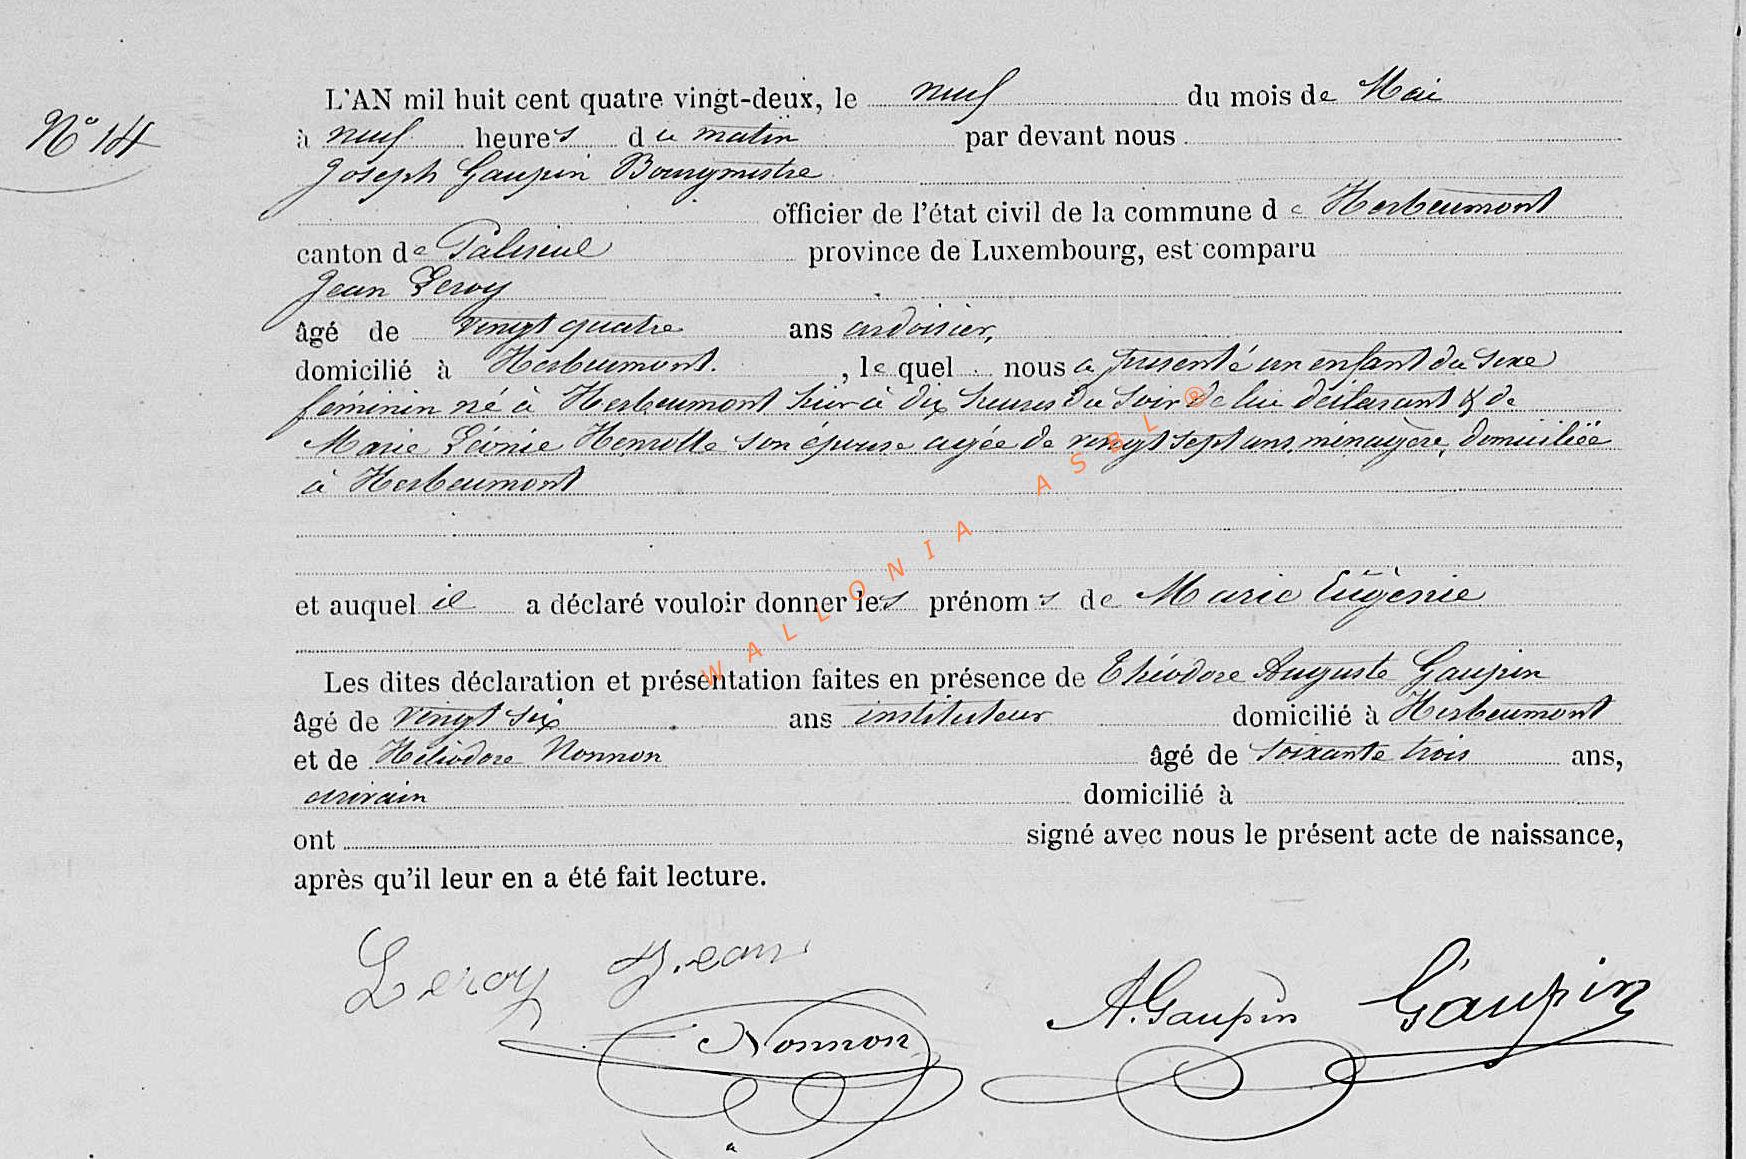 L'AN mil huit cent quatre vingt-deux, le neuf du mois de Mai
N° 14
à neuf heures du matin par devant nous
Joseph Gaupin Bourgmestre
officier de l'état civil de la commune de Herbeumont
canton de Paliseul province de Luxembourg, est comparu
Jean Leroy
âgé de vingt quatre ans ardoisier,
domicilié à Herbeumont. , lequel nous a présenté un enfant du sexe
féminin né à Herbeumont hier à dix heures du soir de lui déclarant & de
Marie Léonie Henrotte son épouse agée de vingt sept ans, ménagère, domiciliée
à Herbeumont
et auquel il a déclaré vouloir donner les prénoms de Marie Eugènie
Les dites déclaration et présentation faites en présence de Théodore Auguste Gaupin
âgé de vingt six ans instituteur domicilié à Herbeumont
et de Héliodore Nonnon âgé de soixante trois ans,
écrivain domicilié à
ont signé avec nous le présent acte de naissance,
après qu'il leur en a été fait lecture.
Leroy Jean
A. Gaupin Gaupin
Nonnon
WALLONIA ASBL ®